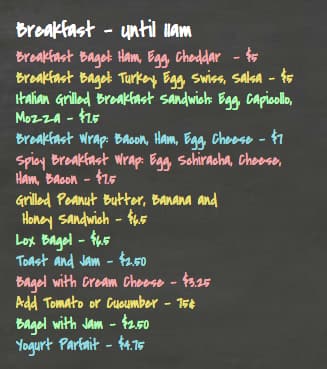 Breakfast - until 11am
Breakfast Bagel: Ham, Egg, Cheddar - $5
Breakfast Bagel: Turkey, Egg, Swiss, Salsa - $5
Italian Grilled Breakfast Sandwich: Egg, Capicollo,
Mozza - $7.5
Breakfast Wrap: Bacon, Ham, Egg, Cheese - $7
Spicy Breakfast Wrap: Egg, Schiracha, Cheese,
Ham, Bacon - $7.5
Grilled Peanut Butter, Banana and
Honey Sandwich - $6.5
Lox Bagel - $6.5
Toast and Jam - $2.50
Bagel with Cream Cheese - $3.25
Add Tomato or Cucumber - 75¢
Bagel with Jam - $2.50
Yogurt Parfait - $4.75